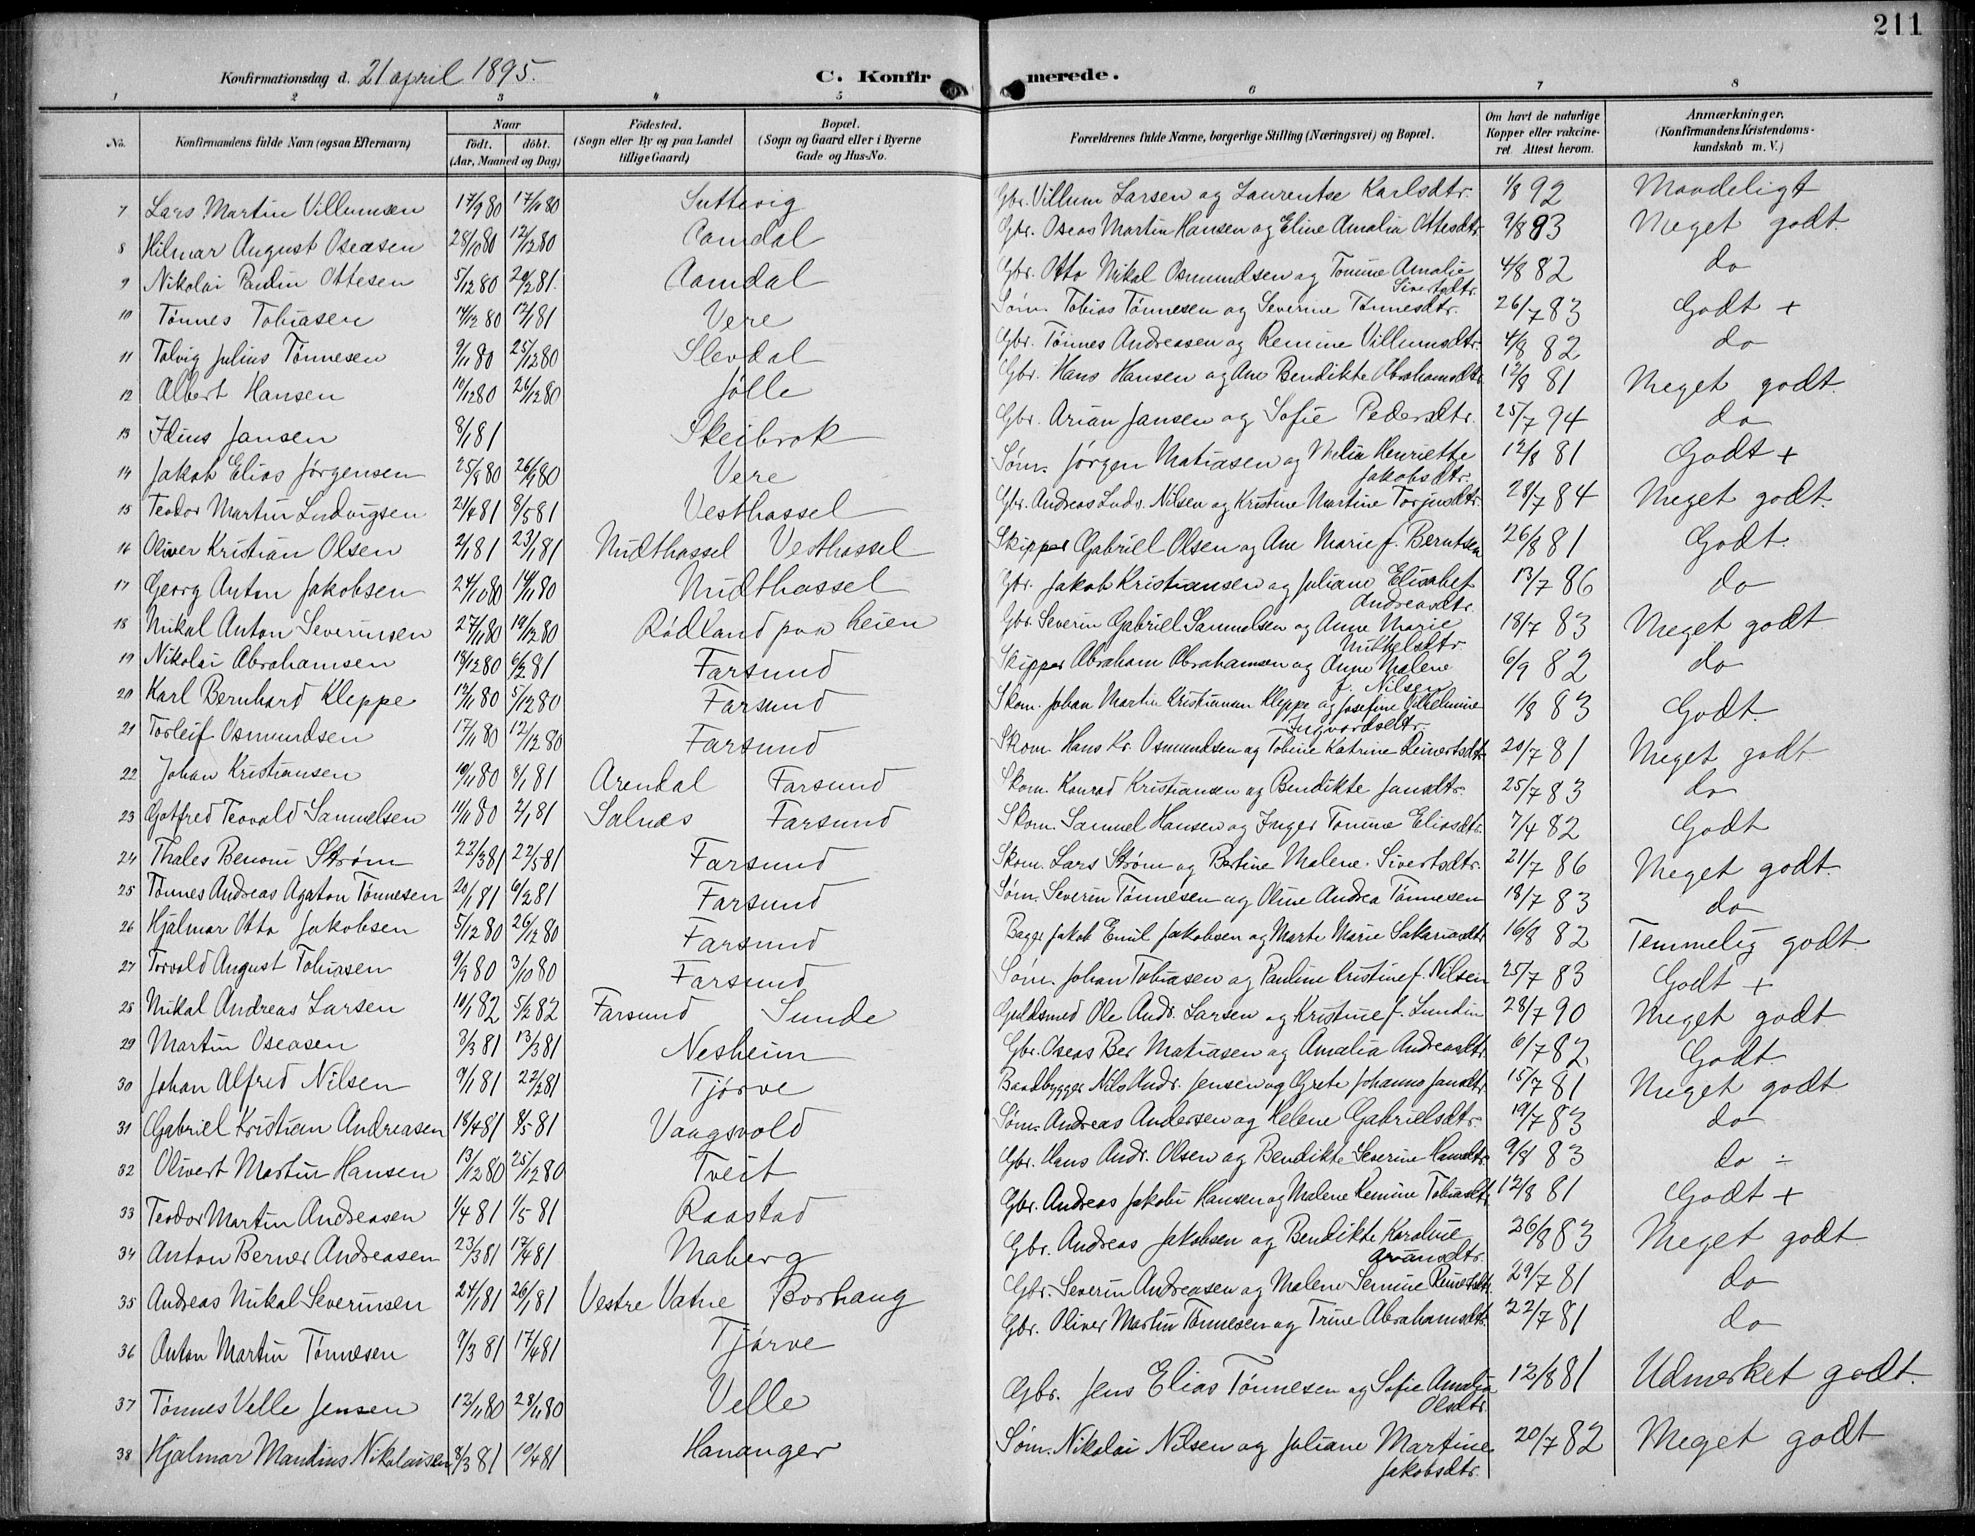 211
Konfirmationsdag d. 21 april 1895. C. Konfirmerede.
1 2 3 4 5 6 7 8
No. Konfirmandens fulde Navn (ogsaa Efternavn) Naar født. døbt. (Aar, Maaned og Dag) Fødested. (Sogn eller By og paa Landet tillige Gaard) Bopæl. (Sogn og Gaard eller i Byerne Gade og Hus-No. Forældrenes fulde Navne, borgerlige Stilling (Næringsvei) og Bopæl. Om havt de naturlige Kopper eller vakcineret. Attest herom. Anmærkninger. (Konfirmandens Kristendomskundskab m. V.)
7 Lars Martin Villumsen 17/9 80 17/10 80 Suttevig Gbr. Villum Larsen og Laurentse Karlsdtr. 1/8 92 Maadeligt
8 Hilmar August Oseasen 28/10 80 12/12 80 Aamdal Gbr. Oseas Martin Hansen og Eline Amalia Ottesdtr. 9/8 83 Meget godt.
9 Nikolai Paulin Ottesen 5/12 80 20/2 81. Aamdal Gbr. Otto Nikal Osmundsen og Tomine Amalie Sivertsdtr. 4/8 82 do
10 Tønnes Tobiasen 14/12 80 12/1 81 Vere Søm. Tobias Tønnesen og Severine Tønnesdtr. 26/7 83 Godt +
11 Tolvig Julius Tønnesen 9/11 80 25/12 80 Slevdal Gbr. Tønnes Andreasen og Remine Villumsdtr. 4/8 82 do
12 Albert Hansen 10/12 80 26/12 80 Jølle Gbr. Hans Hansen og Ane Bendikte Abrahamsdtr. 12/8 81 Meget godt.
13 Idius Jansen 8/1 81 Skeibrok Gbr. Arian Jansen og Sofie Pedersdtr. 25/7 94 do
14 Jakob Elias Jørgensen 25/8 80 26/9 80 Vere Søm. Jørgen Matiasen og Melia Henriette Jakobsdtr. 12/8 81 Godt +
15 Teodor Martin Ludvigsen 21/4 81 8/5 81 Vesthassel Gbr. Andreas Ludv. Nilsen og Kristine Martine Torjusdtr. 28/7 84 Meget godt.
16 Oliver Kristian Olsen 2/1 81 23/1 81 Midthassel Vesthassel Skipper Gabriel Olsen og Ane Marie f. Berntsen 26/8 81 Godt.
17 Georg Anton Jakobsen 24/10 80 14/11 80 Midthassel Gbr. Jakob Kristiansen og Juliane Elisabet Andreasdtr. 13/7 86 do
18 Mikal Anton Severinsen 27/11 80 19/12 80 Rødland paa heien Gbr. Severin Gabriel Samuelsen og Anne Marie Mikkelsdtr. 18/7 83 Meget godt
19 Nikolai Abrahamsen 18/12 80 6/2 81 Farsund Skipper Abraham Abrahamsen og Anne Malene f. Nilsen 6/9 82 do
20 Karl Bernhard Kleppe 12/11 80 5/12 80 Farsund Skom. Johan Martin Kristiansen Kleppe og Josefine Vilhelmine Ingvardsdtr. 1/8 83 Godt.
21 Torleif Osmundsen 17/11 80 12/12 80 Farsund Skom. Hans Kr. Osmundsen og Tobine Katrine Reinertsdtr. 20/7 81 Meget godt.
22 Johan Kristiansen 10/11 80 8/1 81 Arendal Farsund Skom. Konrad Kristiansen og Bendikte Jansdtr. 25/7 83 do
23 Gotfred Teovald Samuelsen 11/11 80 2/1 81 Salnes Farsund Skom. Samuel Hansen og Inger Tomine Eliasdtr. 7/4 82 Godt
24 Thales Benoni Strøm 22/3 81 22/5 81 Farsund Skom. Lars Strøm og Bertine Malene Sivertsdtr. 21/7 86 Meget godt.
25 Tønnes Andreas Agaton Tønnesen 20/1 81 6/2 81 Farsund Søm. Severin Tønnesen og Oline Andrea Tønnesen 18/7 83 do
26 Hjalmar Otto Jakobsen 5/12 80 26/12 80 Farsund Bager Jakob Emil Jakobsen og Marte Marie Sakariasdtr. 16/8 82 Temmelig godt.
27 Torvald August Tobiasen 9/9 80 3/10 80 Farsund Søm. Johan Tobiasen og Pauline Kristine f. Nilsen 25/7 83 Godt +
28 Mikal Andreas Larsen 10/1 82 5/2 82 Farsund Sunde Guldsmed Ole Andr. Larsen og Kristine f. Lundin 28/7 90 Meget godt
29 Martin Oseasen 3/3 81 13/3 81 Nesheim Gbr. Oseas Ber Matiasen og Amalia Andreasdtr. 6/7 82 Godt.
30 Johan Alfred Nilsen 9/1 81 22/2 81 Tjørve Baadbygger Nils Andr. Jensen og Grete Johanne Jansdtr. 15/7 81 Meget godt
31 Gabriel Kristian Andreasen 18/4 81 8/5 81 Vaagsvold Søm. Andreas Andersen og Helene Gabrielsdtr. 19/7 83 do
32 Olivert Martin Hansen 13/12 80 25/12 80 Tveit Gbr. Hans Andr. Olsen og Bendikte Severine Hansdtr. 9/8 83 do ÷
33 Teodor Martin Andreasen 1/4 81 1/5 81 Raastad Gbr. Andreas Jakobi Hansen og Malene Remine Tobiasdtr. 12/8 81 Godt +
34 Anton Berner Andreasen 23/3 81 17/4 81 Maberg Gbr. Andreas Jakobsen og Bendikte Karoline Ariansdtr. 26/8 83 Meget godt
35 Andreas Mikal Severinsen 24/1 81 26/1 81 Vestre Vatne Borhaug Gbr. Severin Andreasen og Malene Semine Reinertsdtr. 29/7 81 do
36 Anton Martin Tønnesen 9/3 81 17/4 81 Tjørve Gbr. Oliver Martin Tønnesen og Trine Abrahamsdtr. 22/7 81 do
37 Tønnes Velle Jensen 12/11 80 28/11 80 Velle Gbr. Jens Elias Tønnesen og Sofie Amalia Olsdtr. 12/8 81 Udmerket godt.
38 Hjalmar Mandius Nikolaisen 8/3 81 10/4 81 Hananger Søm. Nikolai Nilsen og Juliane Martine Jakobsdtr. 20/7 82 Meget godt